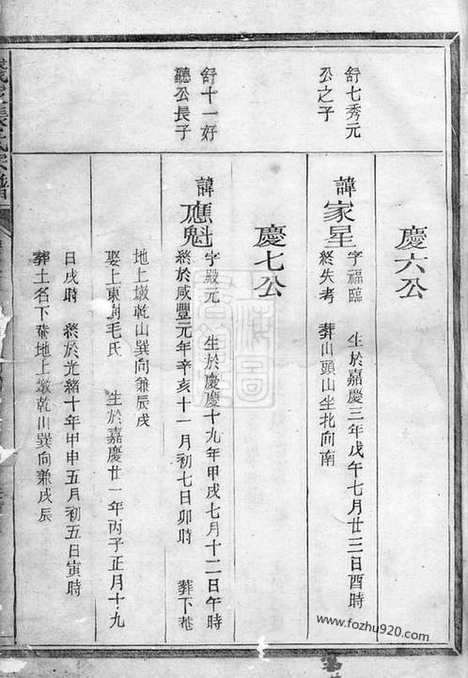 慶六公
舒七秀元
公之子
諱家星
字福臨　生於嘉慶三年戊午七月廿三日酉時
終失考　葬山頭山坐北向南
慶七公
舒十一好
聽公長子
諱應魁
字殿元　生於慶慶十九年甲戌七月十二日午時
終於咸豐元年辛亥十一月初七日卯時　葬下菴
地上墩乾山巽向兼辰戌
娶上東樹毛氏　生於嘉慶廿一年丙子正月十九
日戌時　終於光緒十年甲申五月初五日寅時
葬土名下菴地上墩乾山巽向兼戌辰
www.fozhu920.com